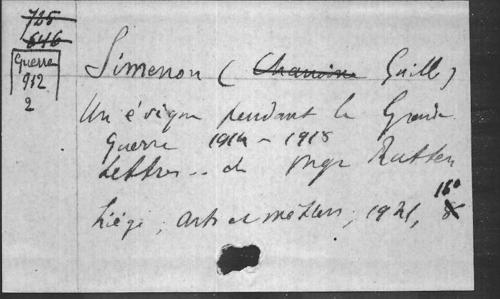 725
646
Guerre
912
2
Simenon (Chanoine Guill)
Un évêque pendant la Grande
Guerre 1914-1918
Lettres .. de Mgr Rutten
Liége, Arts et métiers, 1921, 8
16°